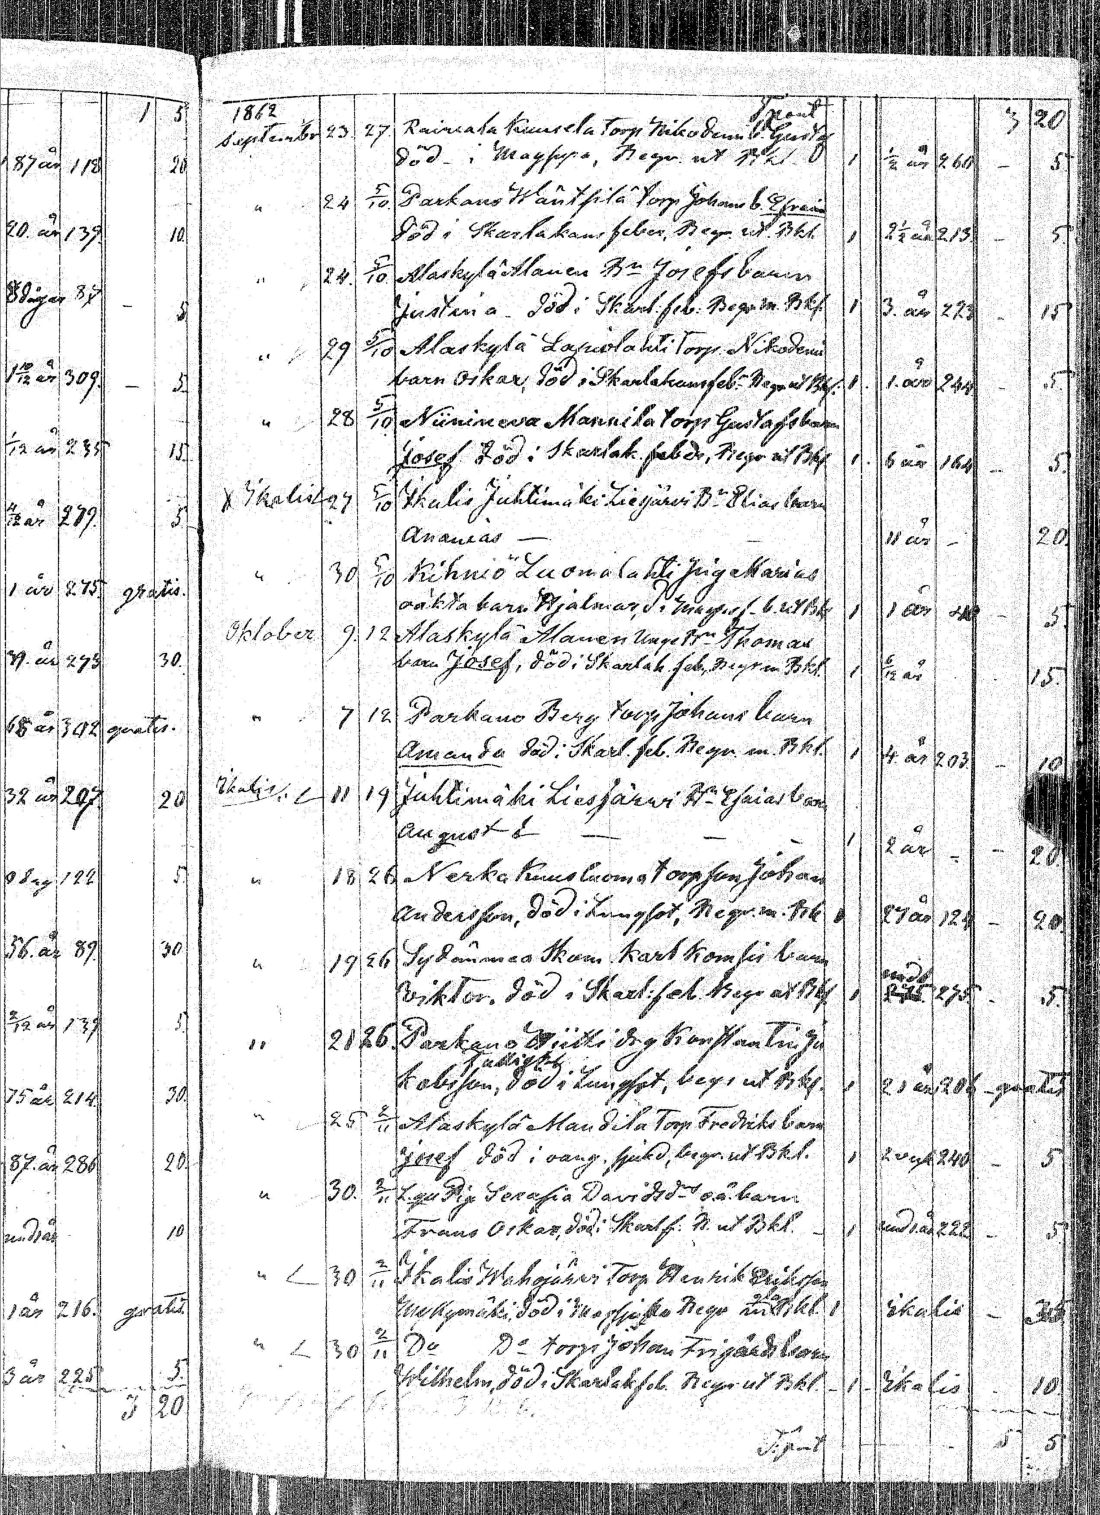 1 5
87 år 118 20
20. år 139. 10.
8 dagar 87 - 5
1 10/12 år 309. - 5.
1/12 år 235 15.
4/12 år 279. 5.
1 år 275 gratis.
39. år 273 30.
68 år 302 gratis.
32 år 207. 20
122 5.
56. år 89. 30
2/12 år 139 5.
75 år 214. 30.
87. år 286 20.
10
1 år 216. gratis.
3 år 225 5.
3 20
1862 Tpart 3 20
September 23. 27. Raiviala Kuusela Torp Nikodemi b. Gustaf
död - i Magsjuka, Begr. ut Bkl. 1 1/2 år 260 - 5.
" 24 5/10. Parkano Wäntsilä Torp Johans b. Efraim
död i Skarlakans feber, Begr. ut. Bkl. 1 2 1/2 år 213. - 5
" 24. 5/10. Alaskylä Alanen Bn Josefs barn
Justina - död i Skarl: feb: Begr. m. Bkl. 1 3. år 223 - 15
" 29 5/10 Alaskylä Lapiolahti Torp. Nikodemi
barn Oskar, död i Skarlakansfeb. Begr ut Bkl. 1. 1. år 244 - 5
" 28 5/10 Niinineva Mannila torp Gustafs barn
Josef död i Skarlak. feber, Begr ut Bkl 1. 6 år 164 - 5.
X Ikalis 27 5/10 Ikalis Juhtimäki Liesjärvi Bn Elias barn
Ananias - 11 år - 20.
" 30 5/10 Kihniö Luomalahti Pig Marias
oäkta barn Hjalmar, d. i b. ut Bkl 1 1 år - 5.
Oktober 9. 12 Alaskylä Alanen Unge Bn Thomas
barn Josef, död i Skarlak. feb, Begr m. Bkl. 1 6/12 år 15.
" 7 12 Parkano Berg torp Johans barn
Amanda död i Skarl. feb. Begr. m. Bkl. 1 4. år 203 - 10
Ikalis. 11 19 Juhtimäki Liesjärvi Bn Esaias barn
August - - - 1 2 år - - 20.
" 18 26 Nerkä Kuusluoma torp son Johan
Andersson, död i Lungsot, Begr. m. Bk 1 27 år 124 - 20.
" 19 26 Sydänmaa Skom. Karl Komsis barn
Viktor. död i Skarl: feb. Begr ut Bkl 1 275 - 5.
" 21 26. Parkano Wiitti drg Konstantin Ja
kobsson, fattighj död i Lungsot, begr ut Bkl. 1 21 år 206 - gratis
" 25 2/11 Alaskylä Mandila Torp Fredriks barn
Josef död i sjukd, begr. ut Bkl. 1 2 240 - 5
" 30. 2/11 Pig Serafia Davidsdr oä. barn
Frans Oskar, död i Skarl f. B. ut Bkl. - 1 und. år 222 - 5
" 30 2/11 Ikalis Wahojärvi Torp Henrik Eriksson
Myllymäki, död i Begr Bkl. 1 Ikalis -
" 30 2/11 Do Do torp Johan barn
Wilhelm, död i Skarlak feb. Begr ut Bkl. - 1 - Ikalis - 10
Tpart 5 5